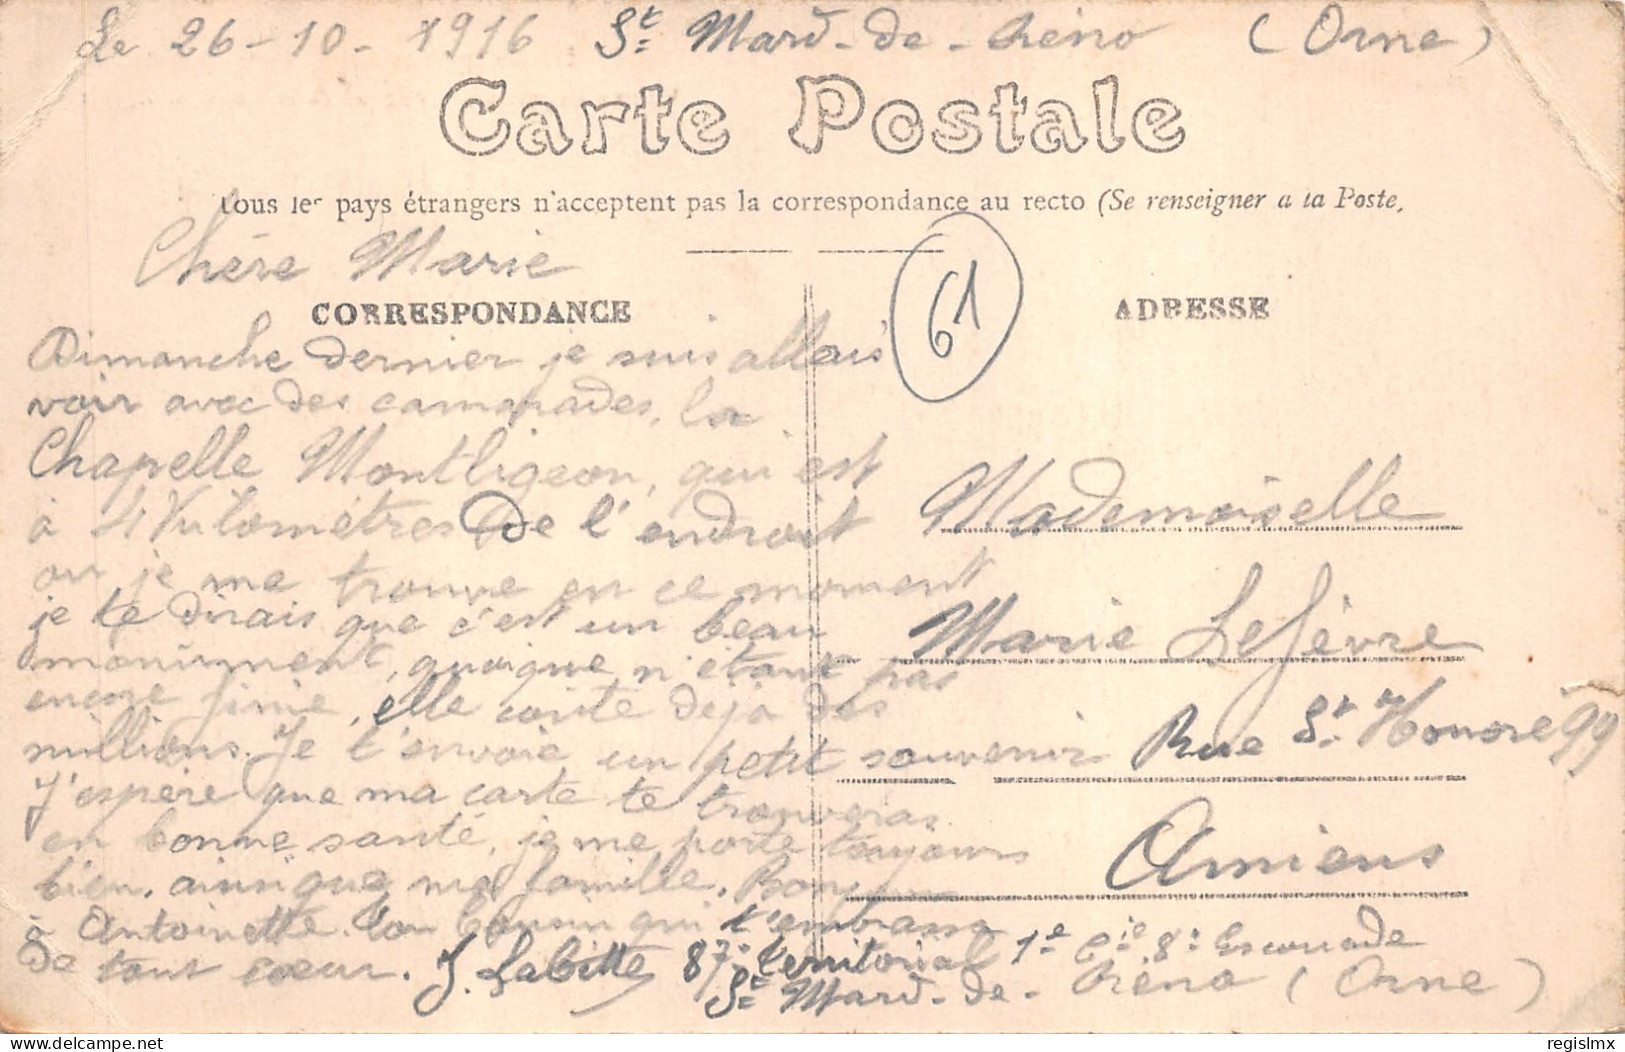 Le 26-10-1916 St Mard-de-Réno (Orne)
Carte Postale
tous les pays étrangers n'acceptent pas la correspondance au recto (Se renseigner a la Poste,
Chère Marie
61
CORRESPONDANCE
ADRESSE
Dimanche dernier je suis allais
voir avec des camarades, la
Chapelle Montligeon, qui est
à 4 Kilomètres de l'endroit
ou je me trouve en ce moment
je te dirais que c'est un beau
monument, quoique n'étant pas
encore finie, elle coute déjà des
millions. Je t'envoie un petit souvenir
J'espère que ma carte te trouveras
en bonne santé, je me porte toujours
bien, ainsi que ma famille. Bonjour
à Antoinette. Ton Cousin qui t'embrasse
de tout cœur. J. Labitte 87e territorial 1e Cie 8e Escouade
St Mard-de-Réno (Orne)
Mademoiselle
Marie Lefèvre
Rue St Honoré 99
Amiens
regislmx
© www.delcampe.net